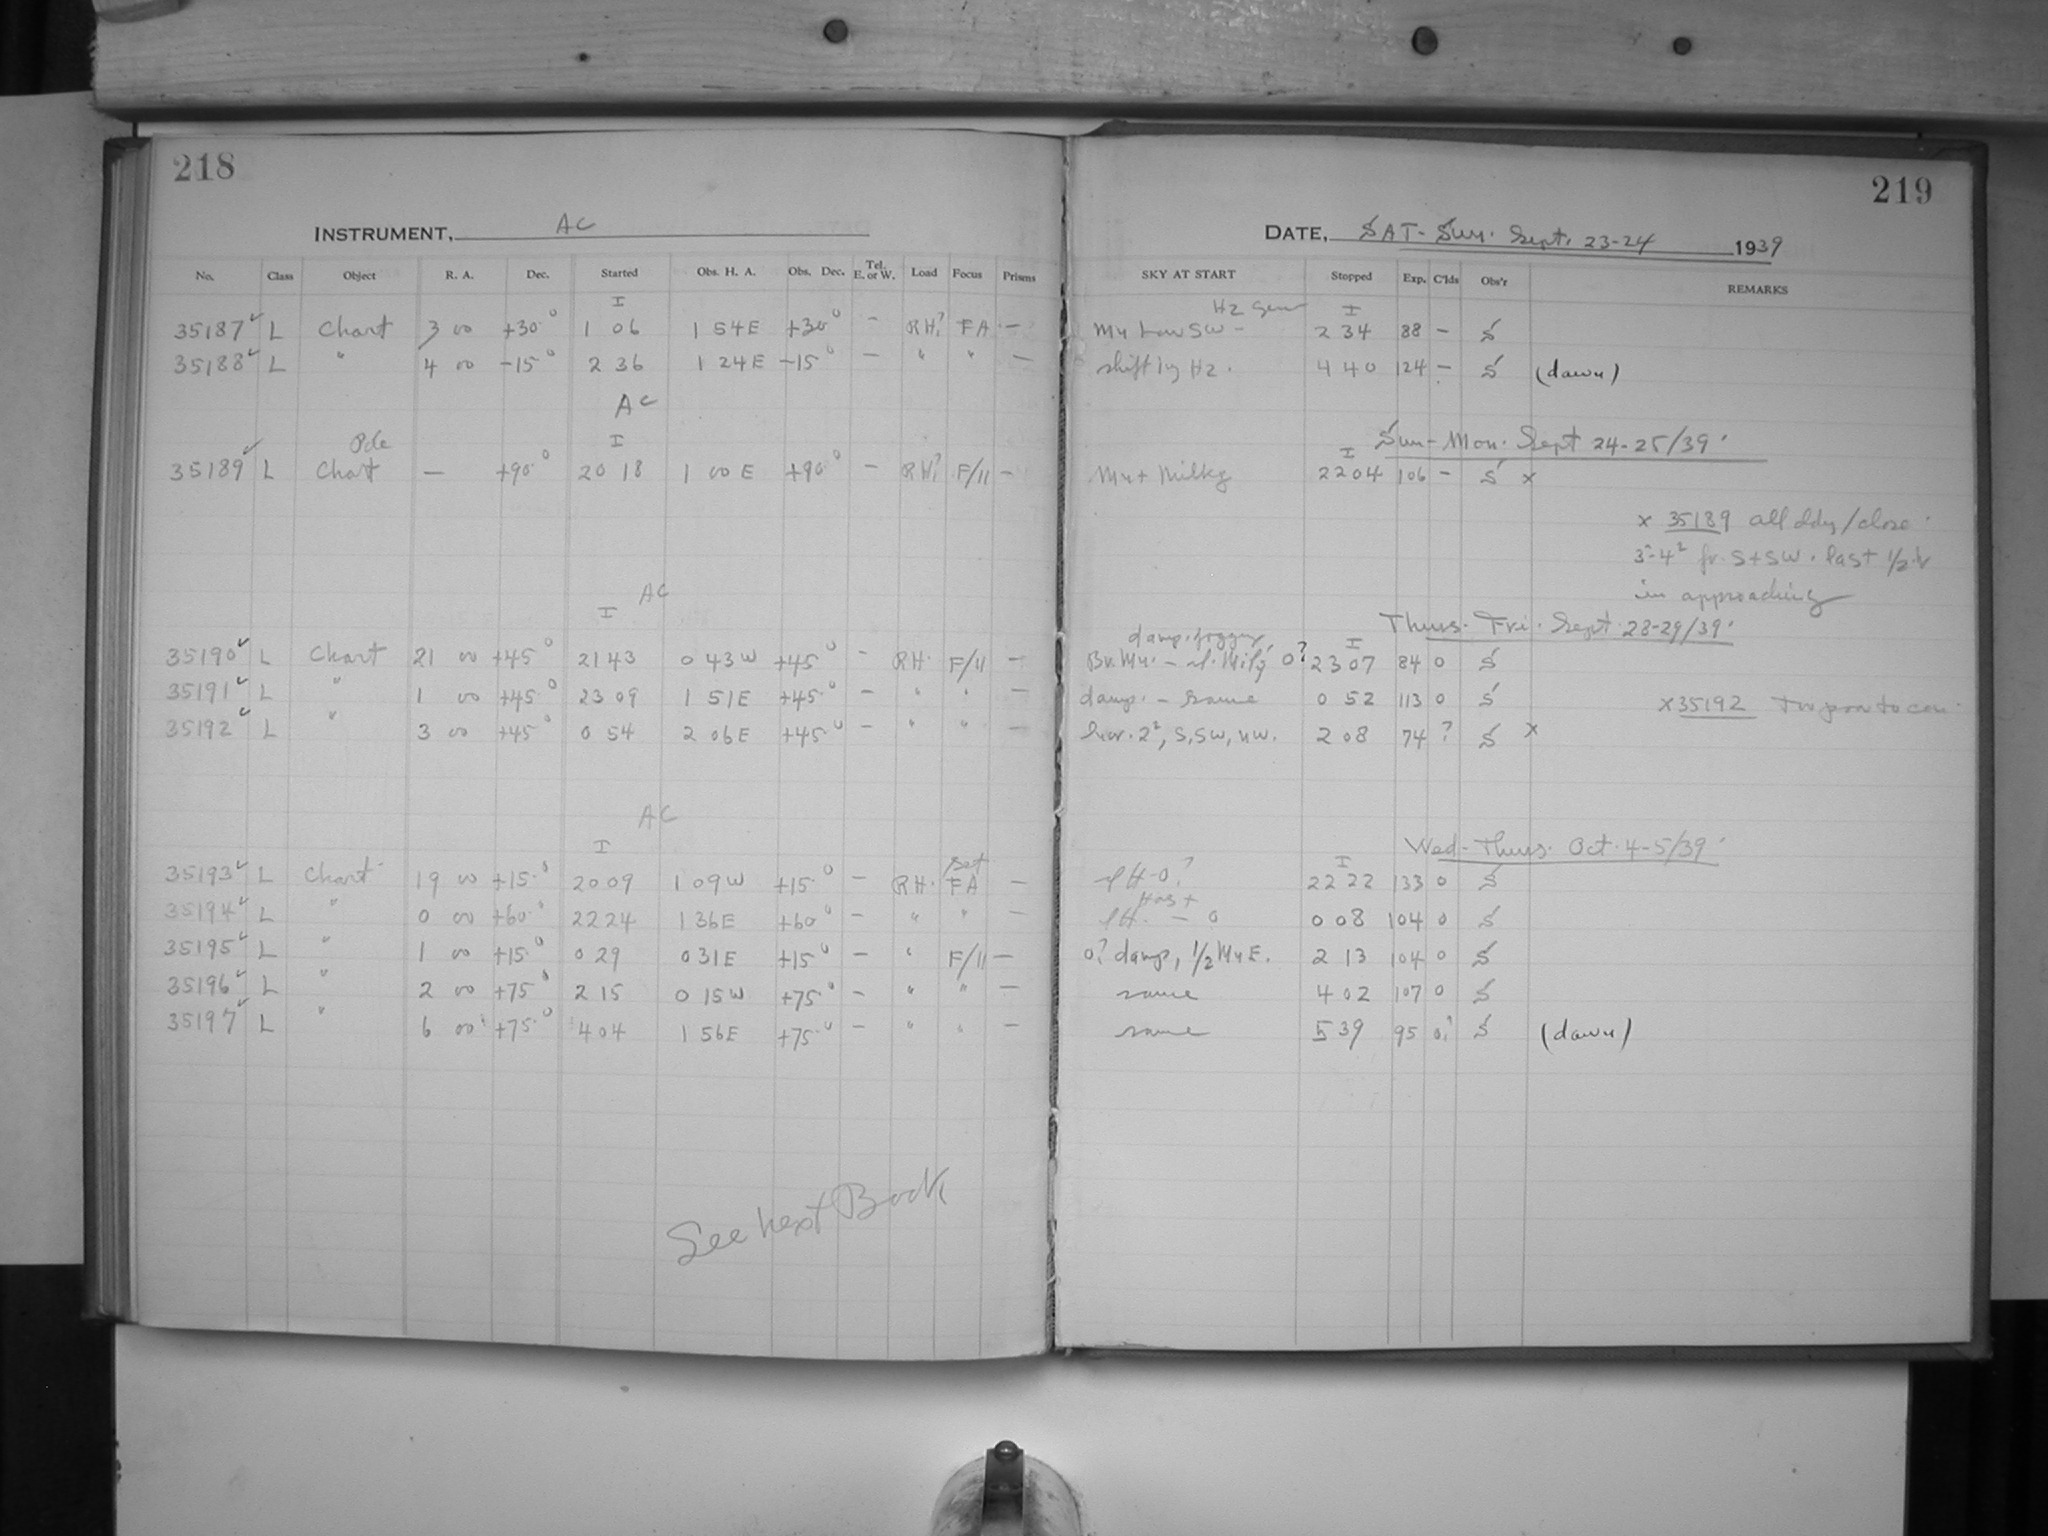 218
INSTRUMENT, AC
No. Class Object R. A. Dec. Started Obs. H. A. Obs. Dec. Tel. E. or W. Load Focus Prisms
I
35187 ✓ L Chart 3 00 +30° 1 06 1 54E +30° — RH? FA —
35188 ✓ L " 4 00 -15° 2 36 1 24E -15° — " " —
AC
Pole I
35189 ✓ L Chart — +90° 20 18 1 00 E +90° — RH? F/11 —
AC
I
35190 ✓ L Chart 21 00 +45° 21 43 0 43W +45° — RH. F/11 —
35191 ✓ L " 1 00 +45° 23 09 1 51E +45° — " " —
35192 ✓ L " 3 00 +45° 0 54 2 06E +45° — " " —
AC
I
35193 ✓ L Chart 19 00 +15° 20 09 1 09W +15° — RH. FA —
35194 ✓ L " 0 00 +60° 22 24 1 36E +60° — " " —
35195 ✓ L " 1 00 +15° 0 29 0 31E +15° — " F/11 —
35196 ✓ L " 2 00 +75° 2 15 0 15W +75° — " " —
35197 ✓ L " 6 00 +75° 4 04 1 56E +75° — " " —
See next Book
219
DATE, SAT- Sun. Sept. 23-24 1939
SKY AT START Stopped Exp. C'lds Obs'r REMARKS
Hz I
SW — 2 34 88 — S
Hz. 4 40 124 — S (dawn)
Sun- Mon. Sept 24-25/39.
I
Milky 22 04 106 — S x
x 35189 all /close
3²-4² fr. S+SW. last 1/2 h
in approaching
Thurs. Fri. Sept. 28-29/39.
damp. foggy I
0? 23 07 84 0 S
damp. — same 0 52 113 0 S
x 35192
2², S, SW, NW. 2 08 74 ? S x
Wed- Thurs. Oct. 4-5/39.
I
H-0? 22 22 133 0 S
H. — 0 0 08 104 0 S
0? damp, 1/2 Mn E. 2 13 104 0 S
same 4 02 107 0 S
same 5 39 95 0? S (dawn)